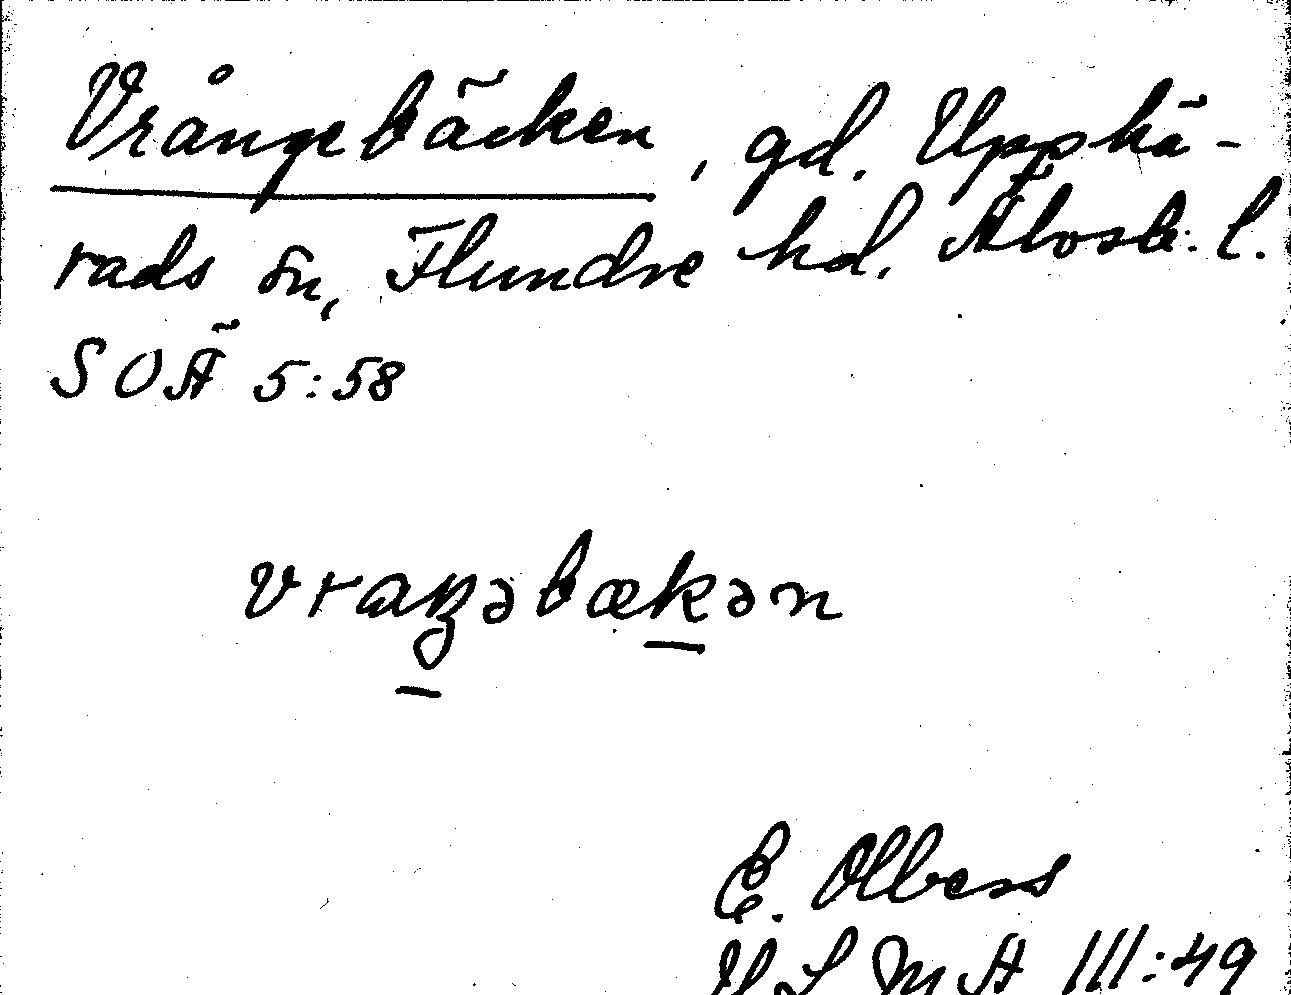 Vrångebäcken, gd. Upphä-
rads sn, Flundre hd. Älvsb. l.
SOÄ 5:58
vraŋəbækən
E. Olbers
III:49